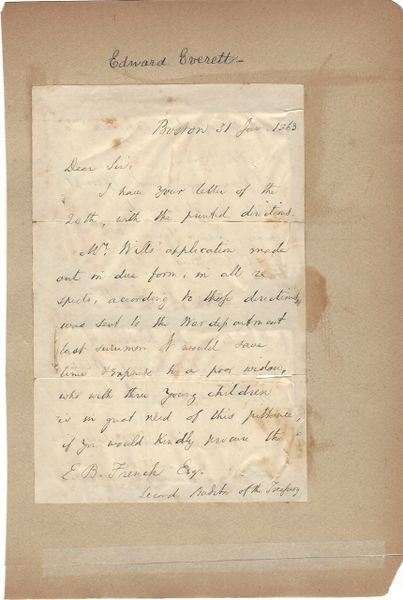 Edward Everett
Boston 31 Jan 1863
Dear Sir,
I have your letter of the
20th, with the printed directions.
Mrs. application made
out in due form, in all re
spects, according to those directions,
was sent to the War department
last summer. It would save
time & expense to a poor widow,
who with three young children
is in great need of this pittance,
if you would kindly procure the
E. B. French Esq.
Second Auditor of the Treasury